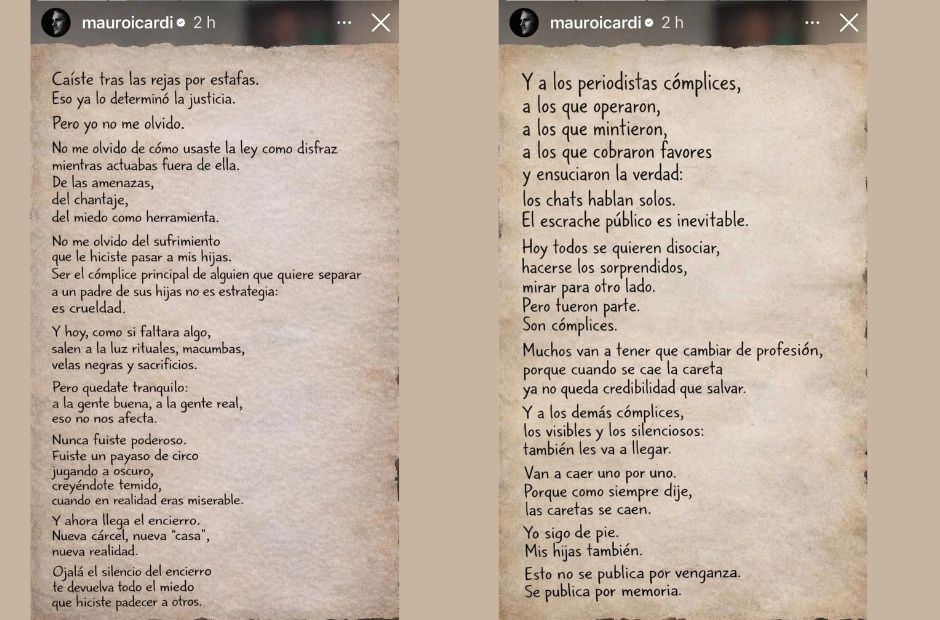 mauroicardi 2 h
Caíste tras las rejas por estafas.
Eso ya lo determinó la justicia.
Pero yo no me olvido.
No me olvido de cómo usaste la ley como disfraz
mientras actuabas fuera de ella.
De las amenazas,
del chantaje,
del miedo como herramienta.
No me olvido del sufrimiento
que le hiciste pasar a mis hijas.
Ser el cómplice principal de alguien que quiere separar
a un padre de sus hijas no es estrategia:
es crueldad.
Y hoy, como si faltara algo,
salen a la luz rituales, macumbas,
velas negras y sacrificios.
Pero quedate tranquilo:
a la gente buena, a la gente real,
eso no nos afecta.
Nunca fuiste poderoso.
Fuiste un payaso de circo
jugando a oscuro,
creyéndote temido,
cuando en realidad eras miserable.
Y ahora llega el encierro.
Nueva cárcel, nueva “casa”,
nueva realidad.
Ojalá el silencio del encierro
te devuelva todo el miedo
que hiciste padecer a otros.
mauroicardi 2 h
Y a los periodistas cómplices,
a los que operaron,
a los que mintieron,
a los que cobraron favores
y ensuciaron la verdad:
los chats hablan solos.
El escrache público es inevitable.
Hoy todos se quieren disociar,
hacerse los sorprendidos,
mirar para otro lado.
Pero fueron parte.
Son cómplices.
Muchos van a tener que cambiar de profesión,
porque cuando se cae la careta
ya no queda credibilidad que salvar.
Y a los demás cómplices,
los visibles y los silenciosos:
también les va a llegar.
Van a caer uno por uno.
Porque como siempre dije,
las caretas se caen.
Yo sigo de pie.
Mis hijas también.
Esto no se publica por venganza.
Se publica por memoria.